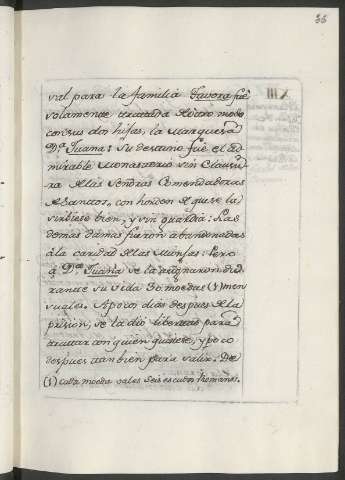 36
val para la familia Tavora fue
solamente tratada de otro modo
con sus dos hijas, la Marquesa
D.ª Juana: su destino fue el ad
mirable Monasterio sin Clausu
ra de las Señoras Comendadoras
de Santos, con horden de que se la
sirviese bien, y sin guardia: Las
demas damas fueron abandonadas
á la caridad de las Monjas: Pero
á D.ª Juana se la asignaron du
rante su vida 30 moedas (1) men
suales. A pocos dias despues de la
prision, se la dió libertad para
tratar con quien quisiese, y poco
despues tambien para salir. De
(1) cada moeda vale seis escudos Romanos.